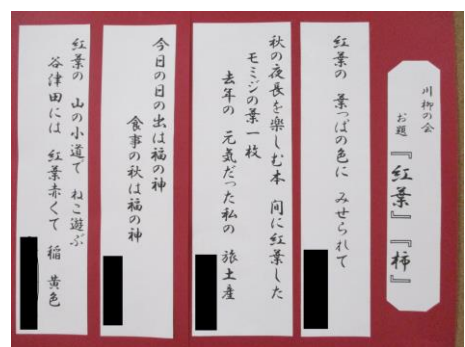 川柳の会
お題『紅葉』『柿』
紅葉の 葉っぱの色に みせられて
秋の夜長を楽しむ本 間に紅葉した
モミジの葉一枚
去年の 元気だった私の 旅土産
今日の日の出は福の神
食事の秋は福の神
紅葉の 山の小道で ねこ遊ぶ
谷津田には 紅葉赤くて 稲 黄色